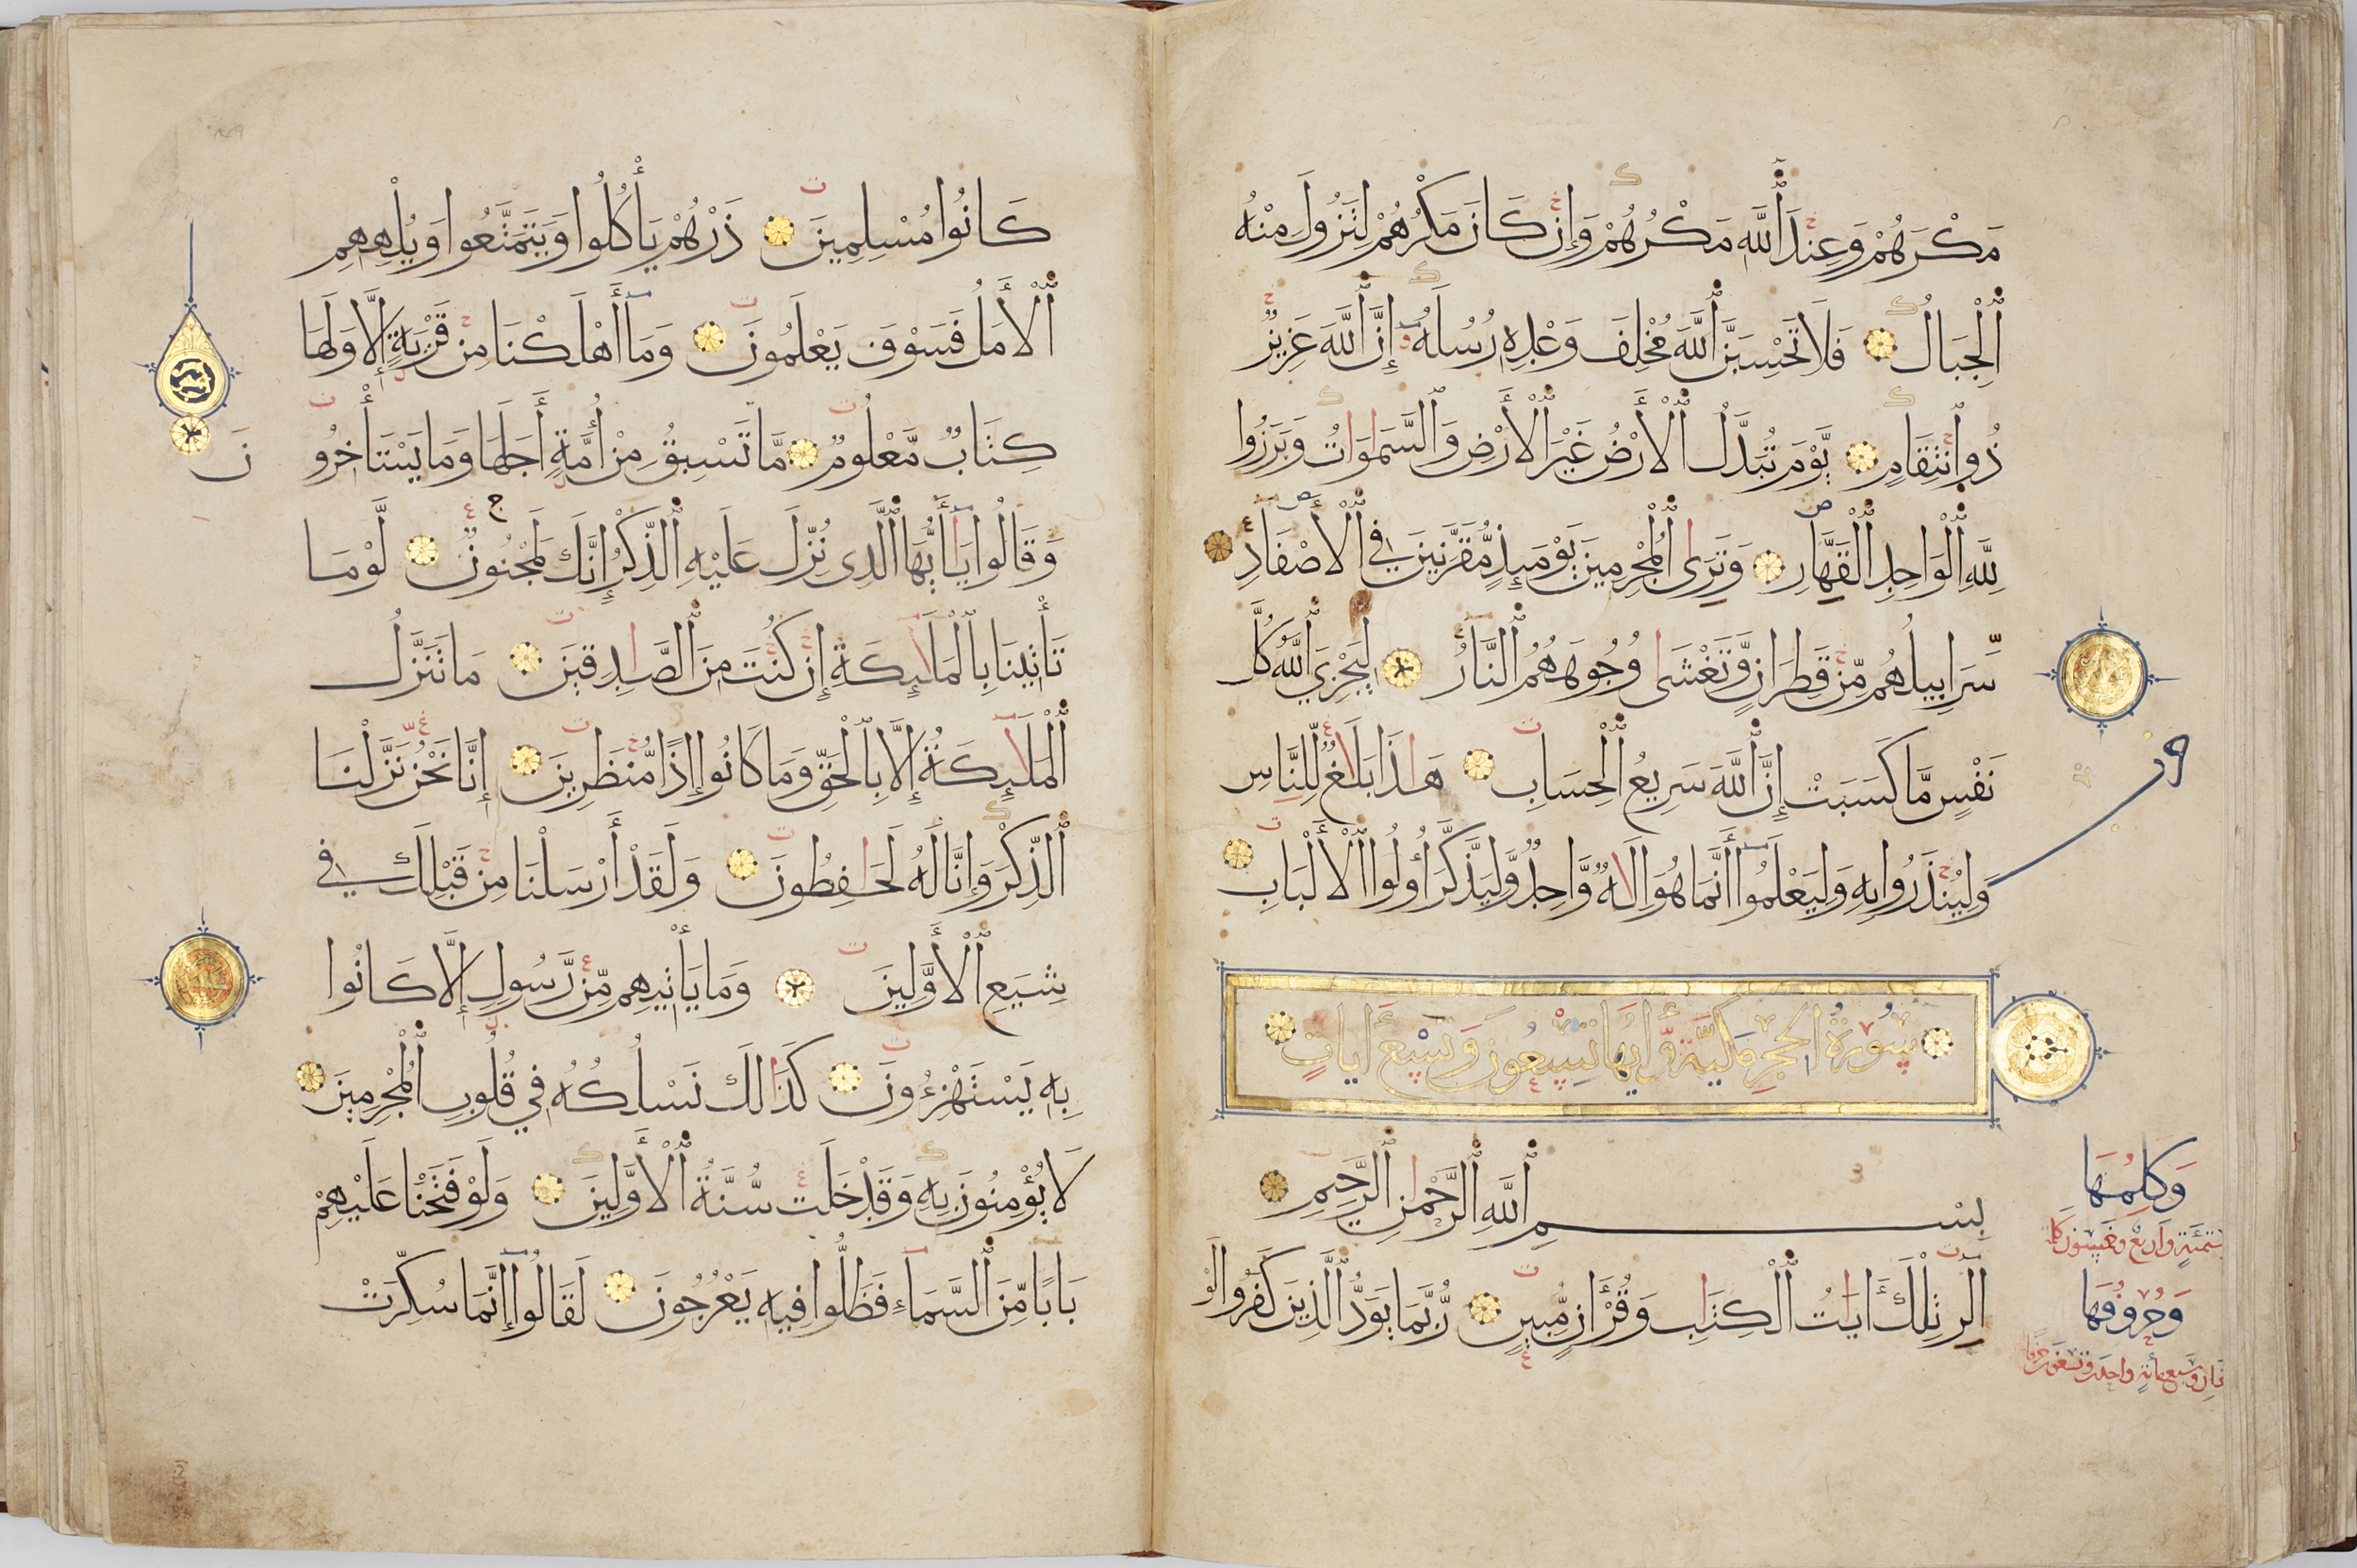 مَكْرَهُمْ وَعِندَ ٱللَّهِ مَكْرُهُمْ وَإِن كَانَ مَكْرُهُمْ لِتَزُولَ مِنْهُ
ٱلْجِبَالُ فَلَا تَحْسِبَنَّ ٱللَّهَ مُخْلِفَ وَعْدِهِ رُسُلَهُ إِنَّ ٱللَّهَ عَزِيزٌ
ذُو ٱنتِقَامٍ يَّوْمَ تُبَدَّلُ ٱلْأَرْضُ غَيْرَ ٱلْأَرْضِ وَٱلسَّمَاوَاتُ وَبَرَزُوا
لِلَّهِ ٱلْوَاحِدِ ٱلْقَهَّارِ وَتَرَى ٱلْمُجْرِمِينَ يَوْمَئِذٍ مُّقَرَّنِينَ فِي ٱلْأَصْفَادِ
سَرَابِيلُهُم مِّن قَطِرَانٍ وَّتَغْشَى وُجُوهَهُمُ ٱلنَّارُ لِيَجْزِيَ ٱللَّهُ كُلَّ
نَفْسٍ مَّا كَسَبَتْ إِنَّ ٱللَّهَ سَرِيعُ ٱلْحِسَابِ هَاذَا بَلَاغٌ لِّلنَّاسِ
وَلِيُنذَرُوا بِهِ وَلِيَعْلَمُوا أَنَّمَا هُوَ إِلَاهٌ وَّاحِدٌ وَّلِيَذَّكَّرَ أُولُوا ٱلْأَلْبَابِ
سُورَةُ الحِجْرِ مَكِّيَّة وَّايُهَا تِسْعُونَ وَتِسْعُ آيَاتٍ
بِسْمِ ٱللَّهِ ٱلرَّحْمَانِ ٱلرَّحِيمِ
وَكَلِمُهَا
ستمئة وأربع وخمسون كلمة
الر تِلْكَ ءَايَاتُ ٱلْكِتَابِ وَقُرْءَانٍ مُّبِينٍ رُّبَمَا يَوَدُّ ٱلَّذِينَ كَفَرُوا لَوْ
وَحُرُوفُهَا
كَانُوا مُسْلِمِينَ ذَرْهُمْ يَأْكُلُوا وَيَتَمَتَّعُوا وَيُلْهِهِمِ
ٱلْأَمَلُ فَسَوْفَ يَعْلَمُونَ وَمَا أَهْلَكْنَا مِن قَرْيَةٍ إِلَّا وَلَهَا
كِتَابٌ مَّعْلُومٌ مَّا تَسْبِقُ مِنْ أُمَّةٍ أَجَلَهَا وَمَا يَسْتَأْخِرُونَ
وَقَالُوا يَا أَيُّهَا ٱلَّذِى نُزِّلَ عَلَيْهِ ٱلذِّكْرُ إِنَّكَ لَمَجْنُونٌ لَّوْ مَا
تَأْتِينَا بِٱلْمَلَائِكَةِ إِن كُنتَ مِنَ ٱلصَّادِقِينَ مَا تَنَزَّلُ
ٱلْمَلَائِكَةُ إِلَّا بِٱلْحَقِّ وَمَا كَانُوا إِذًا مُّنظَرِينَ إِنَّا نَحْنُ نَزَّلْنَا
ٱلذِّكْرَ وَإِنَّا لَهُ لَحَافِظُونَ وَلَقَدْ أَرْسَلْنَا مِن قَبْلِكَ فِي
شِيَعِ ٱلْأَوَّلِينَ وَمَا يَأْتِيهِم مِّن رَّسُولٍ إِلَّا كَانُوا
بِهِ يَسْتَهْزِءُونَ كَذَالِكَ نَسْلُكُهُ فِي قُلُوبِ ٱلْمُجْرِمِينَ
لَا يُؤْمِنُونَ بِهِ وَقَدْ خَلَتْ سُنَّةُ ٱلْأَوَّلِينَ وَلَوْ فَتَحْنَا عَلَيْهِمْ
بَابًا مِّنَ ٱلسَّمَاءِ فَظَلُّوا فِيهِ يَعْرُجُونَ لَقَالُوا إِنَّمَا سُكِّرَتْ